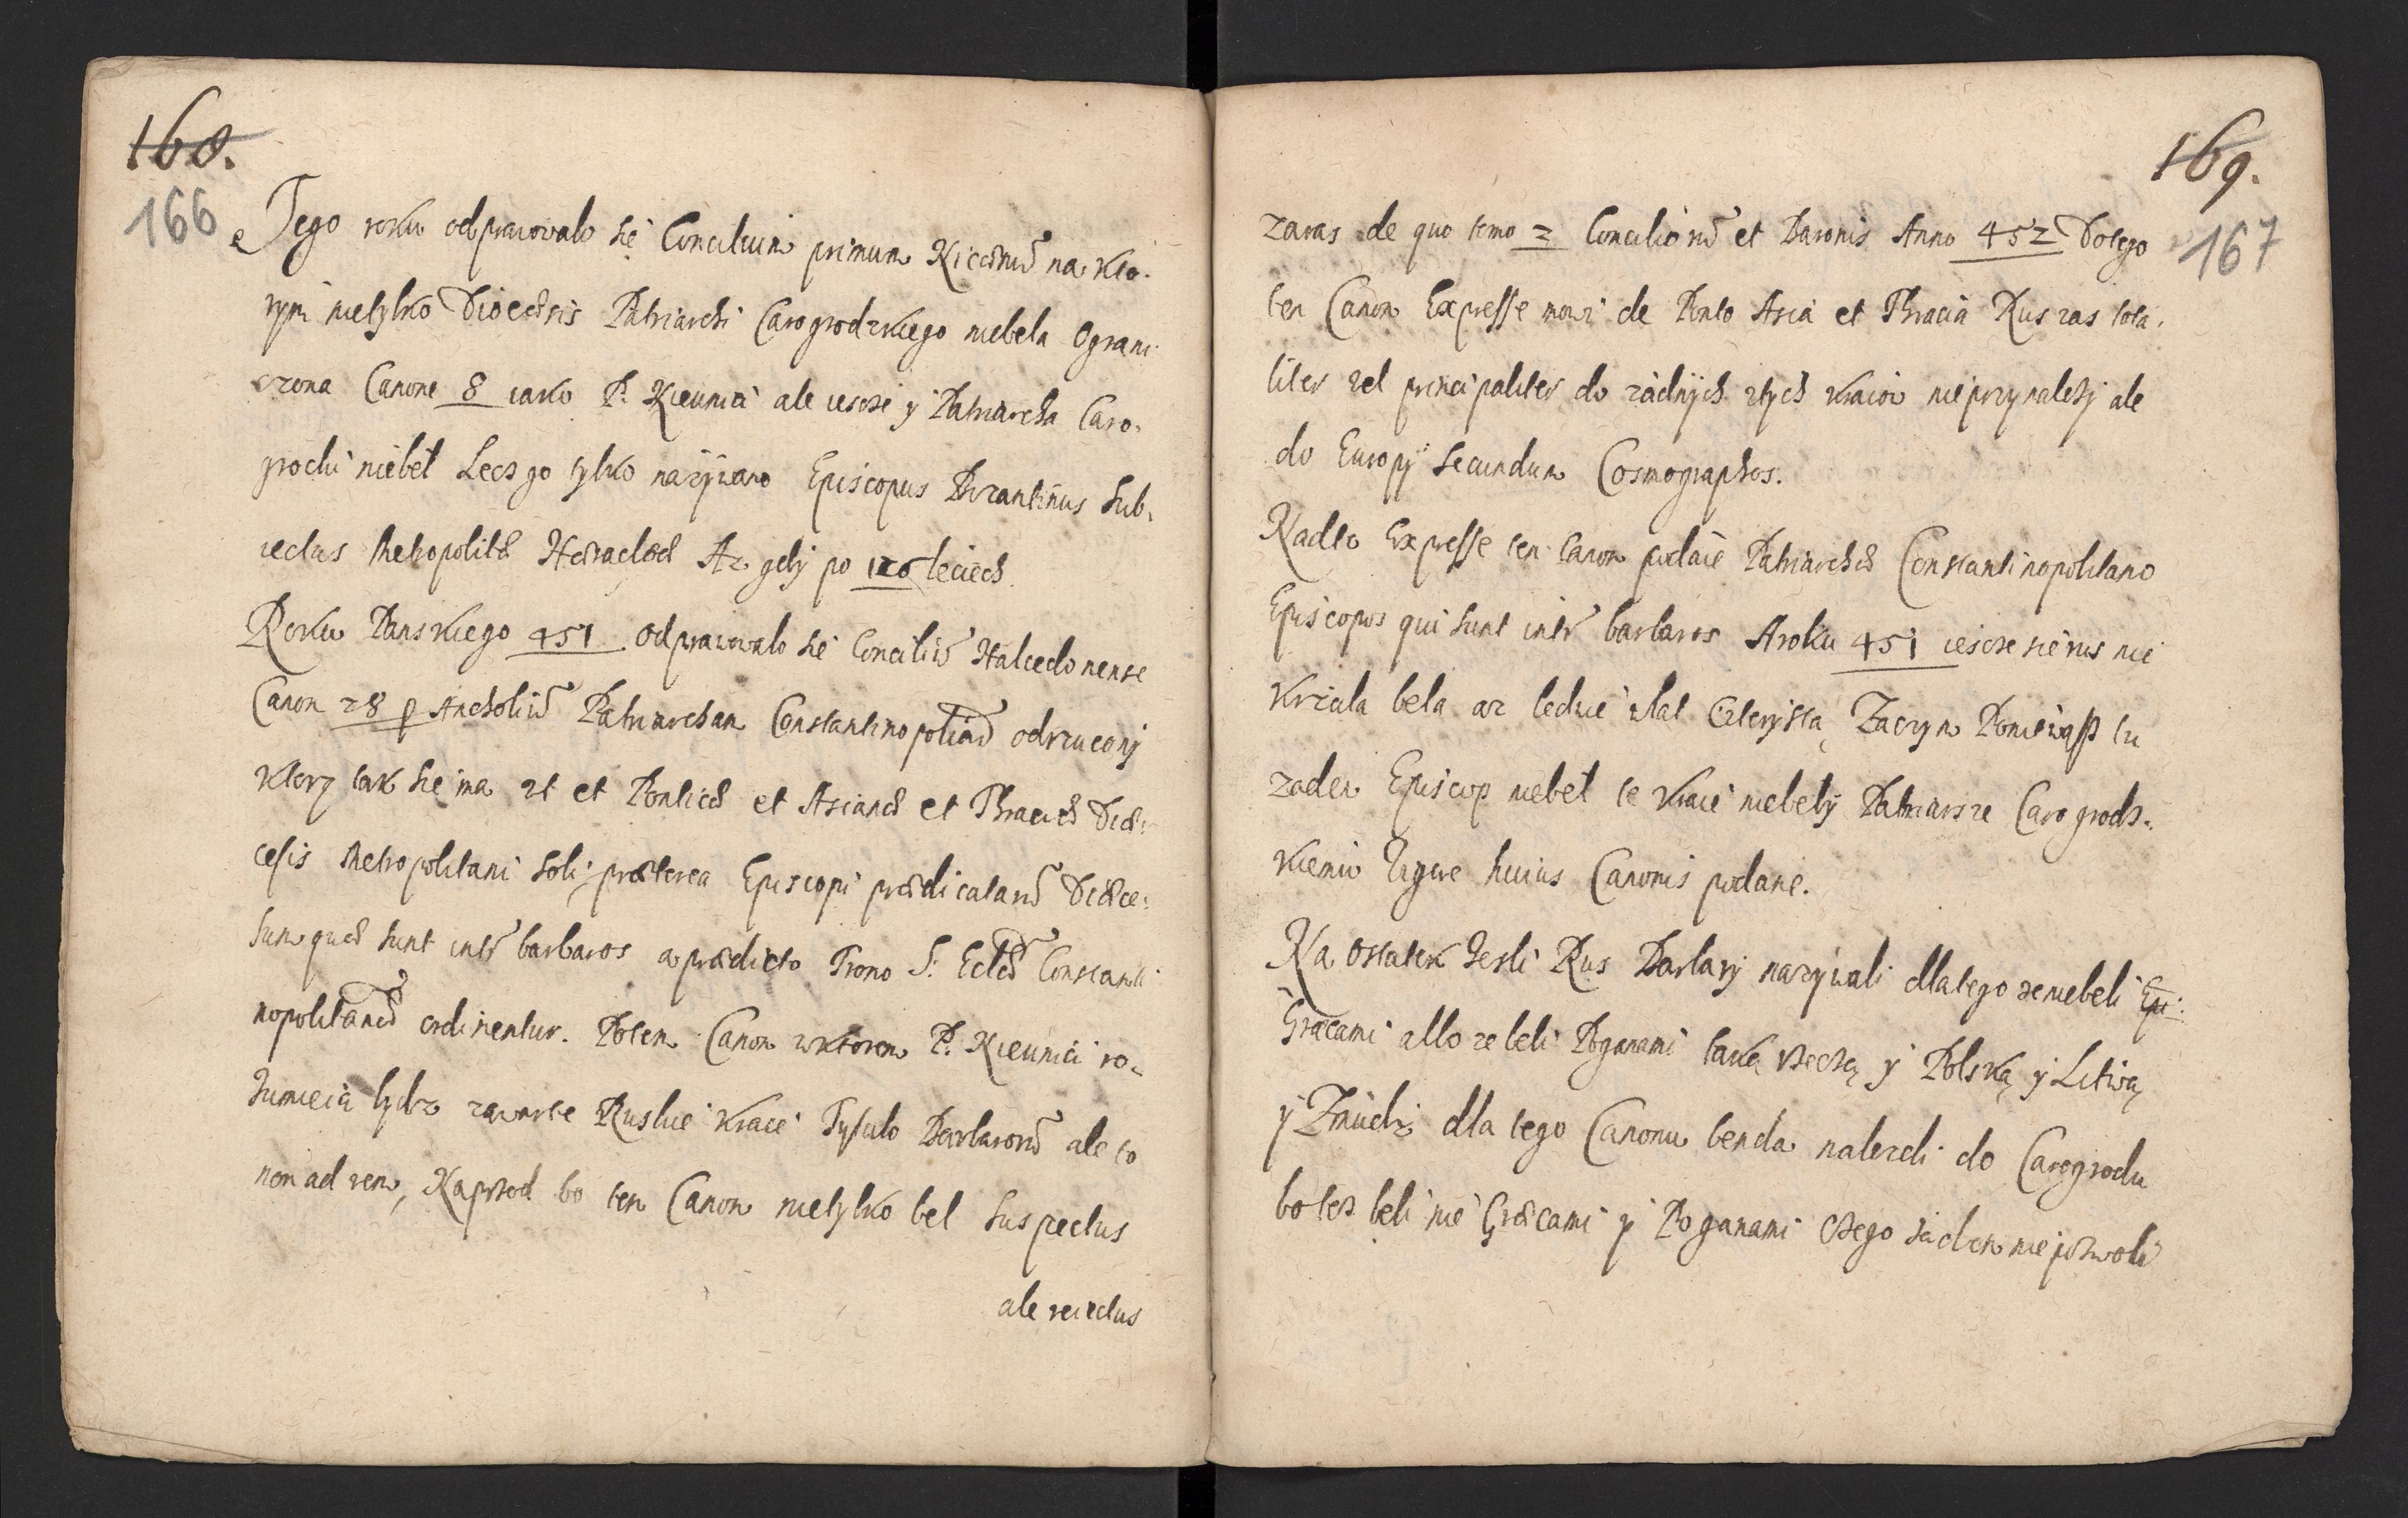 168.
166
Tego roku odprawowalo sie Concilium primum Nicænũ na kto-
rym nietylko Diœcæsis Patriarchi Carogrodzkiego niebela Ograni-
czona Canone 8 iako P. Kiewnici ale iescze y Patriarcha Caro-
grodu niebel Lecz go tylko nazÿwano Episcopus Bizantinus Sub-
iectus Metropolitæ Heracleæ Az gdÿ po 126 leciech
Roku Panskiego 451 Odprawowalo sie Conciliũ Halcedonense
Canon 28 p Anatoliũ Patriarcham Constantinopolitanũ odrzuconÿ
ktorÿ tak sie ma Vt et Ponticæ et Asianæ et Thraciæ Diœ-
cesis Metropolitani soli, præterea Episcopi prædicatarũ Diœce-
sum quæ sunt inter barbaros a prædicto Trono S. Eclæ Constanti
nopolitanæ ordinentur. Poten Canon wktoren P. Kiewnici ro-
zumieia bÿdz zawarte Ruskie kraie Tytulo Barbarorũ ale to
non ad rem, Naprzod bo ten Canon nietylko bel Suspectus
ale reiectus
169.
167
zaras de quo tomo 2 Conciliorũ et Baronis Anno 452 Dotego
ten Canon Expresse mowi de Ponto Asia et Thracia Rus zas tota-
liter vel principaliter do zadnÿch ztÿch kraiow nieprzynalezÿ ale
do Europÿ Secundum Cosmographos.
Nadto Expresse ten canon podaie Patriarchæ Constantinopolitano
Episcopos qui sunt inter barbaros Aroku 451 iescze sie rus nie
krzcila bela az ledwie wlat Czterysta, Zaczym Poniewasz tu
zaden Episcop niebel te kraie niebelÿ Patriarsze Carogrodz-
kiemu Vigore huius Canonis podane.
Na Ostatek Jesli Rus Barbarÿ nazywali dlatego ze niebeli Epi:
Græcami albo ze beli Poganami taką rzeczą y Polską y Litwą
y Zmudz dla tego Canonu benda nalezeli do Carogrodu
bo tez beli nie Græcami y Poganami Czego zaden nie pozwoli